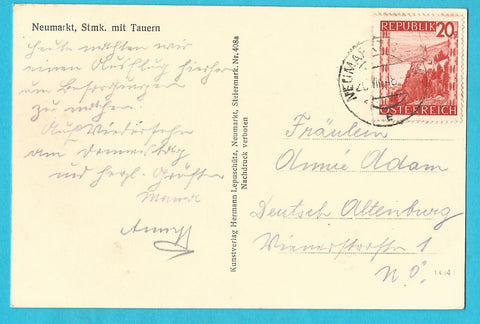 Neumarkt, Stmk. mit Tauern
Heute machten wir
einen Ausflug hierher
um Besorgungen
zu machen.
Auf Wiedersehn
am Donnerstag
und herzl. Grüße
Mama
Kunstverlag Hermann Lepuschütz, Neumarkt, Steiermark. Nr. 408a
Nachdruck verboten
REPUBLIK 20
ÖSTERREICH
NEUMARKT
Fräulein
Annie Adam
Deutsch Altenburg
Wienerstrasse 1
N.Ö.